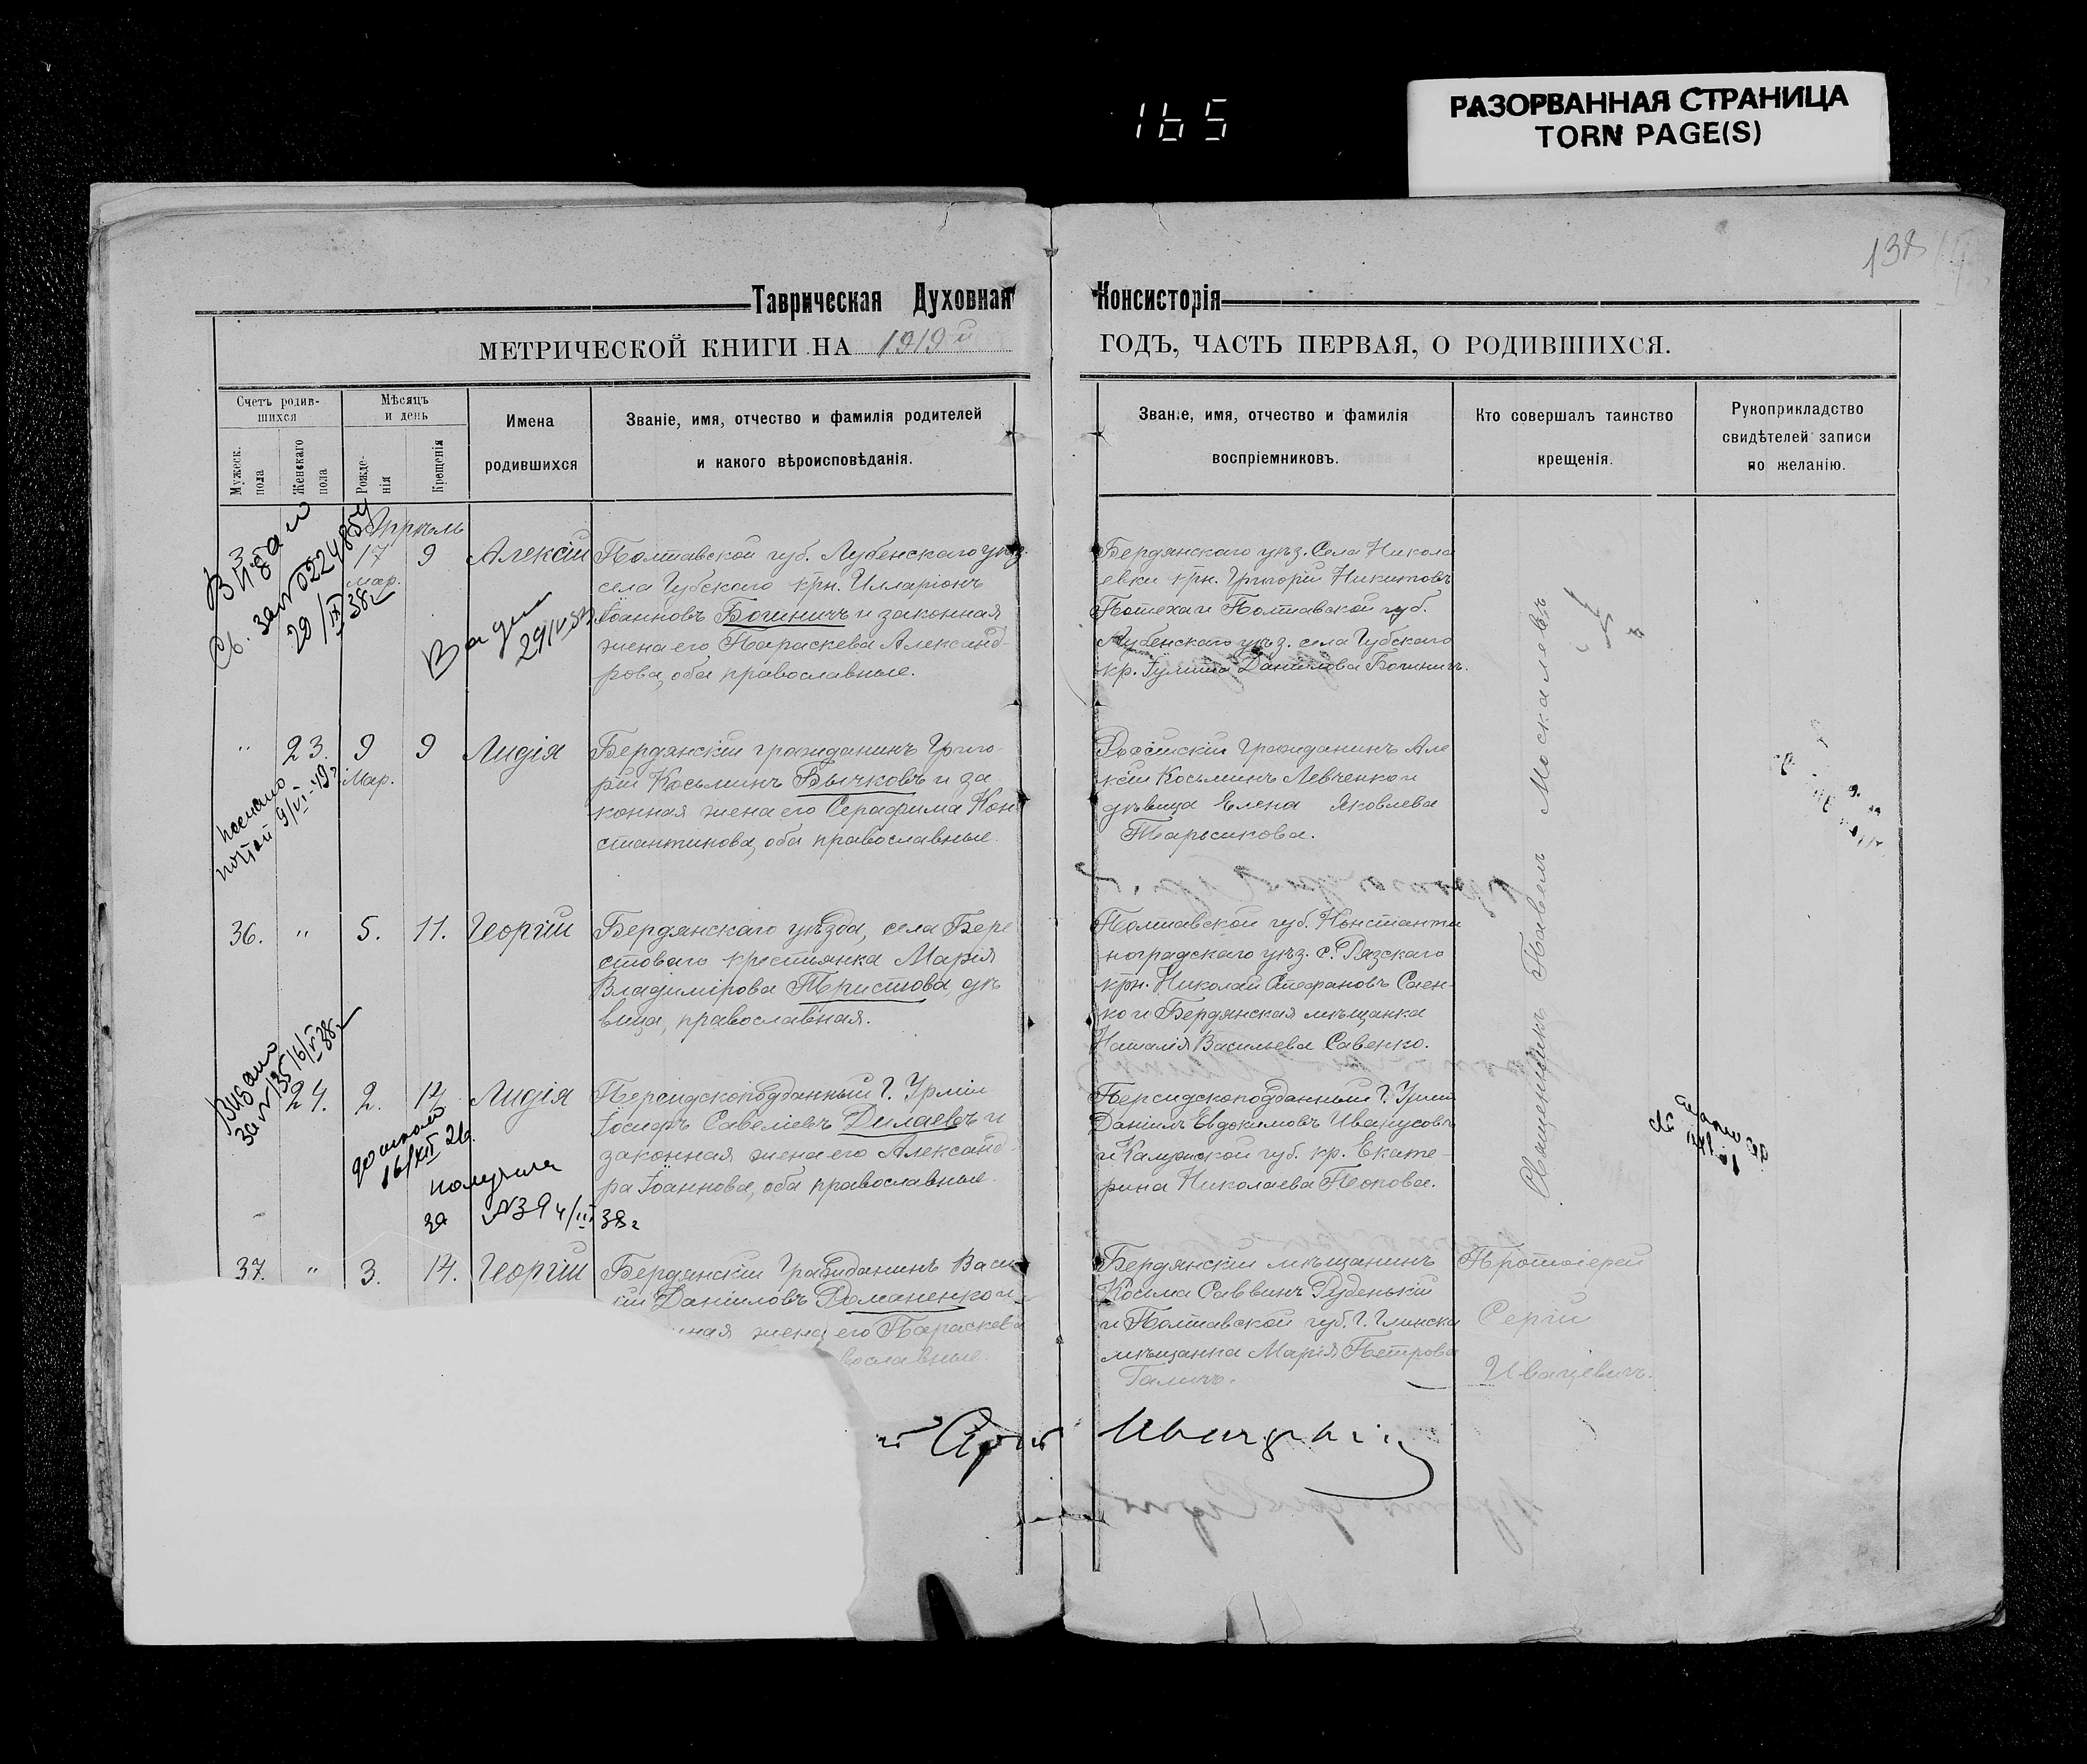 165
РАЗОРВАННАЯ СТРАНИЦА
TORN PAGE(S)
138
Таврическая Духовная Консисторія
МЕТРИЧЕСКОЙ КНИГИ НА 1919й ГОДЪ, ЧАСТЬ ПЕРВАЯ, О РОДИВШИХСЯ.
Счетъ родив-
шихся
Мужеск.
пола
Женскаго
пола
Мѣсяцъ
и день
Рожде-
нія
Крещенія
Имена
родившихся
Званіе, имя, отчество и фамилія родителей
и какого вѣроисповѣданія.
Званіе, имя, отчество и фамилія
воспріемниковъ.
Кто совершалъ таинство
крещенія.
Рукоприкладство
свидѣтелей записи
по желанію.
Апрѣль
17 9 Алексій
Мар.
Полтавской губ. Лубенскаго уѣз.
села Губскаго крн. Илларіонъ
Іоанновъ Богиничъ и законная
жена его Параскева Александ-
рова, оба православные.
Бердянскаго уѣз. Села Никола
евки крн. Григорій Никитовъ
Потеха и Полтавской губ.
Лубенскаго уѣз. села Губскаго
кр. Данілова Богиничъ.
" 23. 9 9 Лидія
Мар.
Бердянскій гражданинъ Григо-
рій Косьминъ Бычковъ и за
конная жена его Серафима Кон
стантинова, оба православные.
Россійскій Гражданинъ Але
ксій Косьминъ Левченко и
дѣвица Елена Яковлева
послано
почтой 9/VI-49г
36. " 5. 11. Георгій
Бердянскаго уѣзда, села Бере
стоваго крестьянка Марія
Владимірова Тристова, дѣ
вица, православная.
Полтавской губ. Константи
ноградскаго уѣз. с. Рязскаго
крн. Николай Стефановъ Саен-
ко и Бердянская мѣщанка
Наталія Васильева Савенко.
24. 2. 14 Лидія
Персидскоподданный г. Урміи
Іосифъ Савеліевъ Дилаевъ и
законная жена его Александ-
ра Іоаннова, оба православные.
Персидскоподданный г. Урміи
Даніилъ Евдокимовъ Иванусовъ
и Калужской губ. кр. Екате-
рина Николаева Попова.
16/XII 26.
получила
за №39 4/III 38г
Священникъ Павелъ Москалевъ
37. " 3. 14. Георгій
Бердянскій Гражданинъ Васи
ій Даніиловъ Романенко и
ная жена его Параскева
вославные.
Бердянскій мѣщанинъ
Косьма Саввинъ Руденькій
и Полтавской губ. г. Глинска
мѣщанка Марія Петрова
Галичъ.
Протоіерей
Сергій
Иващевичъ.